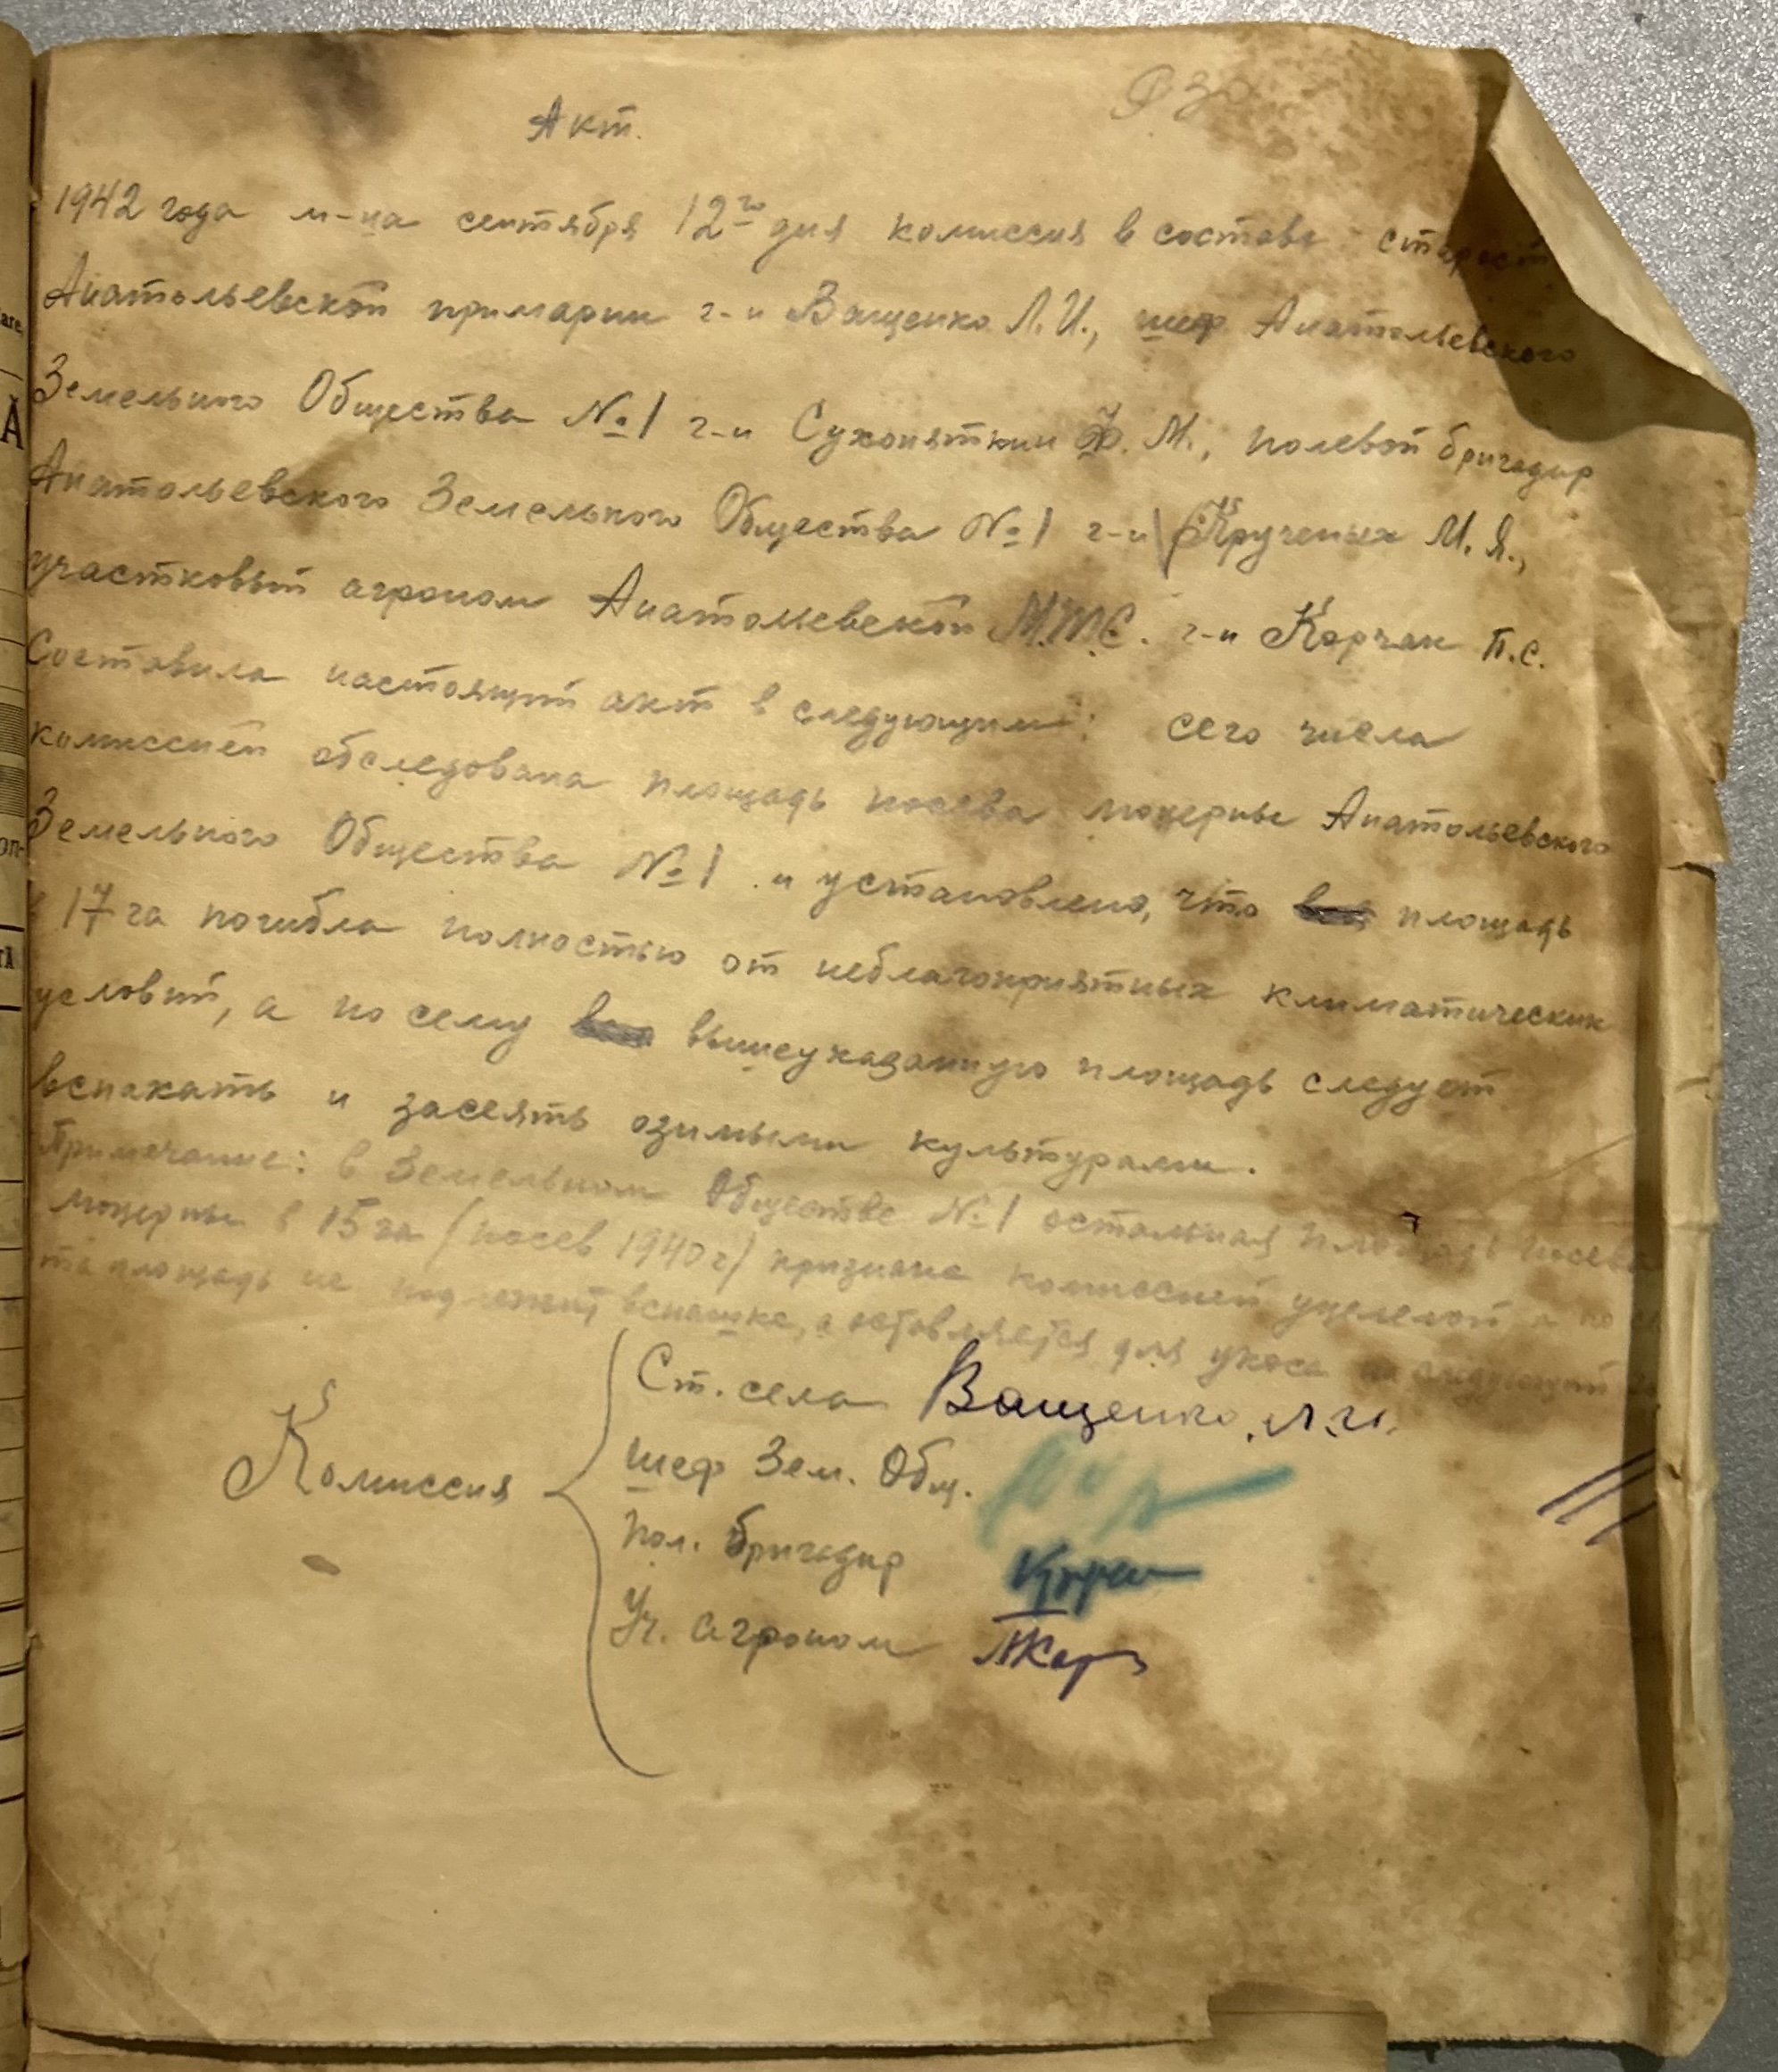 Акт.
1942 года м-ца сентября 12го дня комиссия в составе старост
Анатольевской примарии г-н Ващенко Л.И., шеф Анатольевского
Земельного Общества №1 г-н Сухопяткин Ф. М., полевой бригадир
Анатольевского Земельного Общества №1 г-н Крученых М. Я.,
участковый агроном Анатольевской М.Т.С. г-н Корчак П.С.
Составила настоящий акт в следующим: сего числа
комиссией обследована площадь посева люцерны Анатольевского
Земельного Общества №1 и установлено, что площадь
в 17 га погибла полностью от неблагоприятных климатических
условий, а по сему вышеуказанную площадь следует
вспахать и засеять озимыми культурами.
Примечание: в Земельном Обществе №1 остальная площадь посева
люцерны в 15 га (посев 1940 г) признана комиссией уцелелой а по
та площадь не подлежит вспашке, а оставляется для укоса на следующий
Комиссия
Ст. села Ващенко Л.И.
шеф Зем. Общ.
Пол. бригадир
Уч. агроном